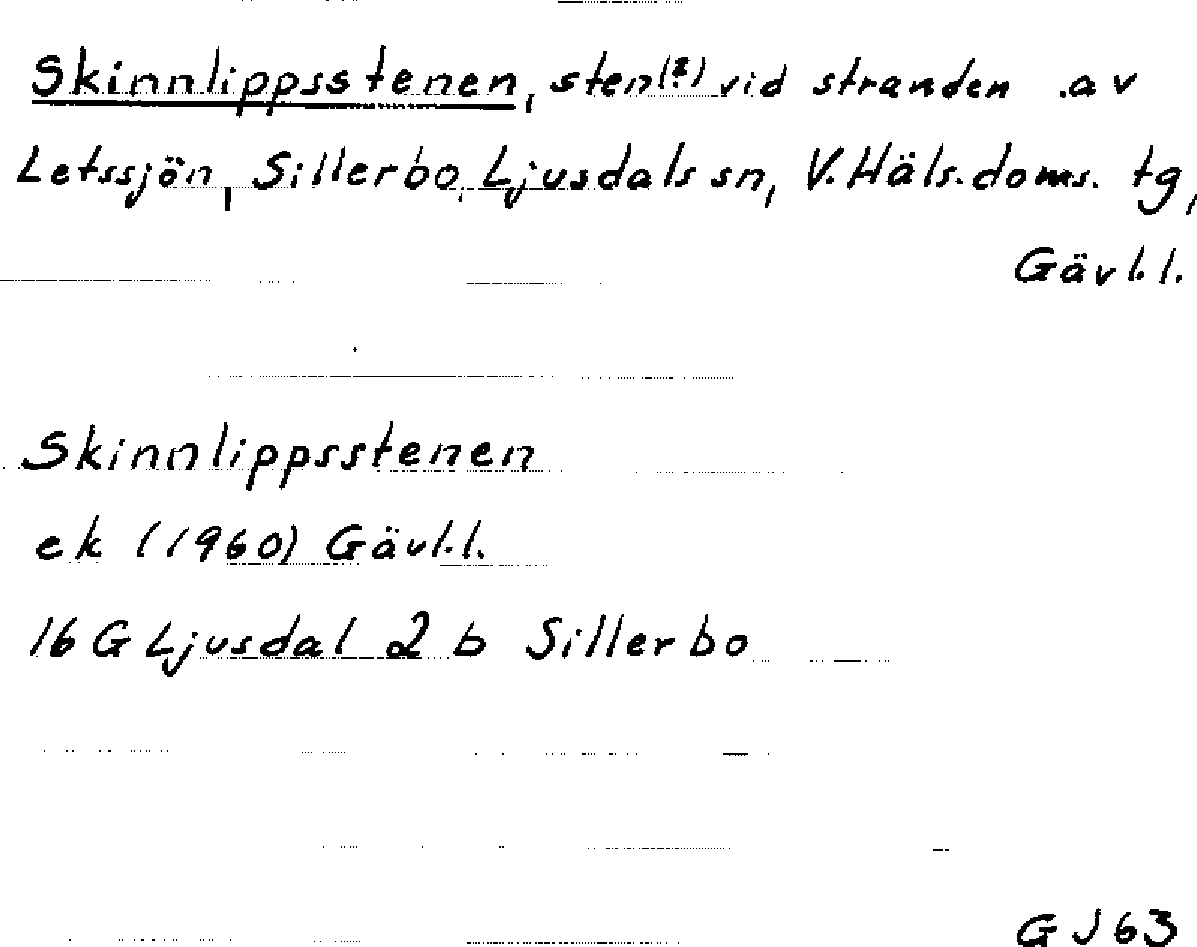 Skinnlippsstenen, sten(?) vid stranden av
Letssjön, Sillerbo, Ljusdals sn, V. Häls. doms. tg,
Gävl.l.
Skinnlippsstenen
ek (1960) Gävl.l.
16 G Ljusdal 2 b Sillerbo
GJ63